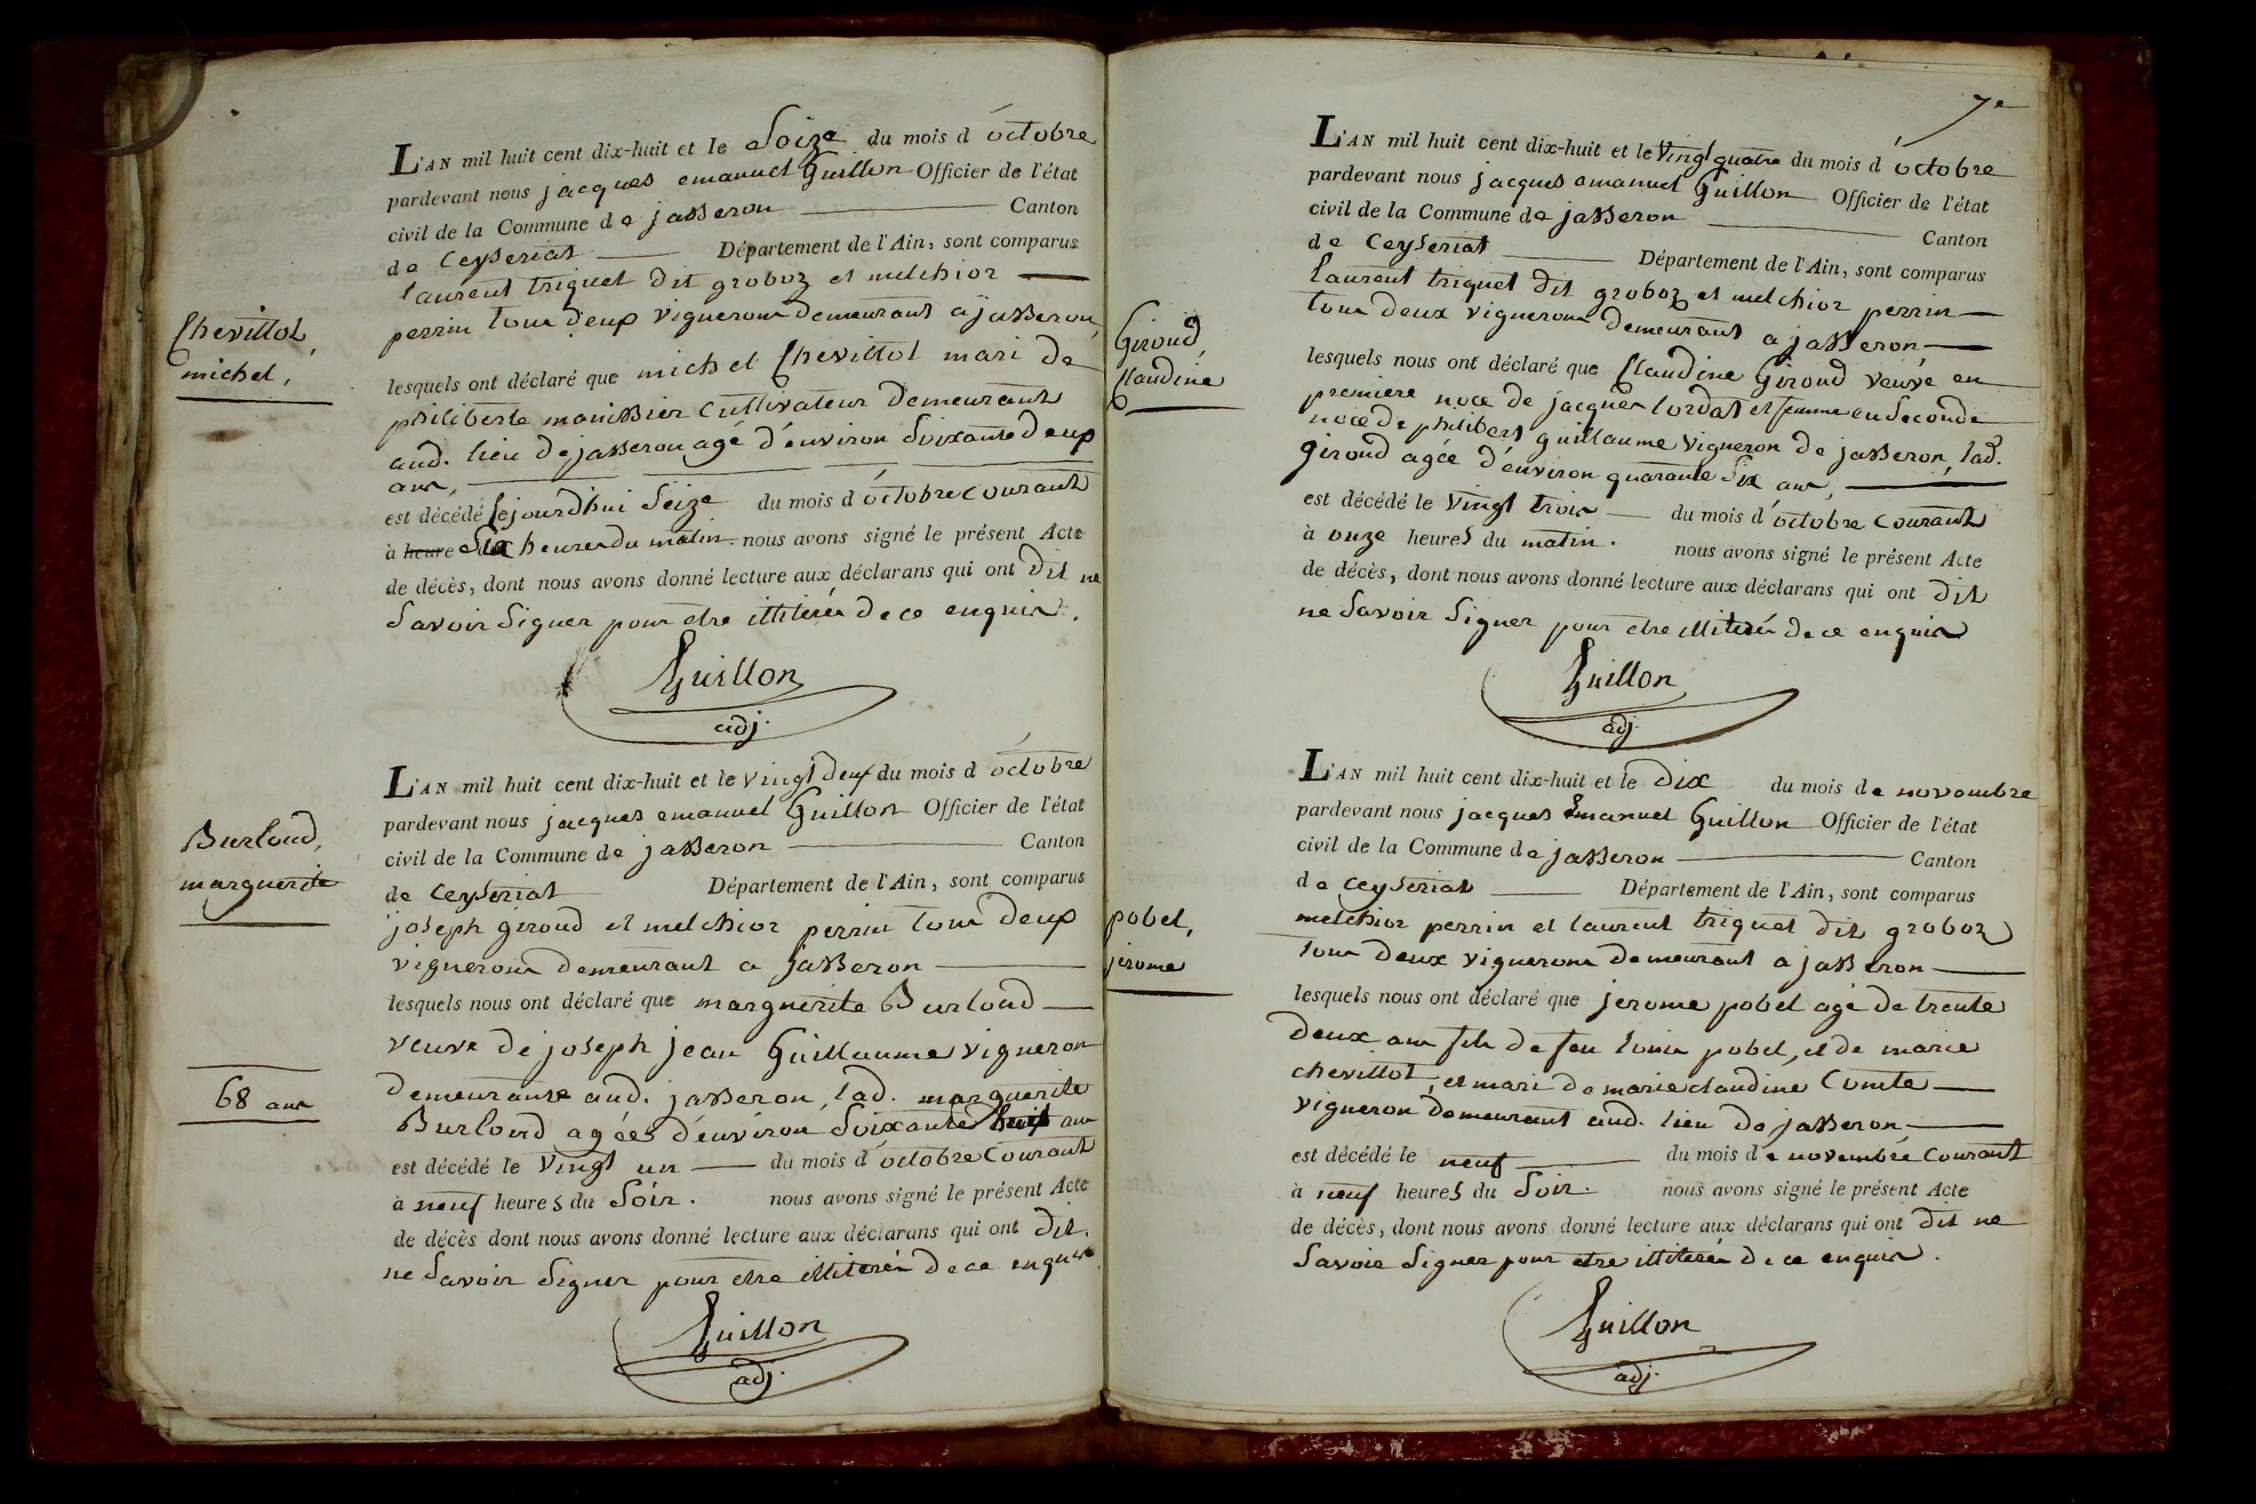 L'AN mil huit cent dix-huit et le Seize du mois d'octobre
pardevant nous jacques emanuel Guillon Officier de l'état
civil de la Commune de jasseron Canton
de Ceyseriat Département de l'Ain, sont comparus
laurent triquet dit groboz et melchior
perrin tous deux vignerons demeurant a jasseron,
Chevillot,
michel,
lesquels ont déclaré que michel Chevillot mari de
philiberte manissier Cultivateur demeurant
aud. lieu de jasseron agé d'environ Soixante deux
ans,
est décédé Cejourd'hui Seize du mois d'octobre Courant
à heure Six heures du matin. nous avons signé le présent Acte
de décès, dont nous avons donné lecture aux déclarans qui ont dit ne
Savoir Signer pour etre illiterés de ce enquis.
Guillon
adj.
L'AN mil huit cent dix-huit et le vingt deux du mois d'octobre
pardevant nous jacques emanuel Guillon Officier de l'état
civil de la Commune de jasseron Canton
de Ceyseriat Département de l'Ain, sont comparus
joseph giroud et melchior perrin tous deux
vignerons demeurant a jasseron
Burloud,
marguerite
lesquels nous ont déclaré que marguerite Burloud
veuve de joseph jean Guillaume vigneron
demeurante aud. jasseron, lad. marguerite
68 ans
Burloud agées d'environ Soixante huit ans
est décédé le vingt un du mois d'octobre Courant
à neuf heures du Soir. nous avons signé le présent Acte
de décès dont nous avons donné lecture aux déclarans qui ont dit.
ne Savoir Signer pour etre illiterés de ce enquis
Guillon
adj.
7e
L'AN mil huit cent dix-huit et le vingt quatre du mois d'octobre
pardevant nous jacques emanuel Guillon Officier de l'état
civil de la Commune de jasseron Canton
de Ceyseriat Département de l'Ain, sont comparus
laurent triquet dit groboz et melchior perrin
tous deux vignerons demeurant a jasseron
Giroud,
Claudine
lesquels nous ont déclaré que Claudine Giroud veuve en
premiere noce de jacques lordat et femme en Seconde
noce de philibert guillaume vigneron de jasseron, lad.
giroud agée d'environ quarante Six ans,
est décédé le vingt trois du mois d'octobre Courant
à onze heures du matin. nous avons signé le présent Acte
de décès, dont nous avons donné lecture aux déclarans qui ont dit
ne Savoir Signer pour etre illiterés de ce enquis
Guillon
adj.
L'AN mil huit cent dix-huit et le dix du mois de novembre
pardevant nous jacques Emanuel Guillon Officier de l'état
civil de la Commune de jasseron Canton
de Ceyseriat Département de l'Ain, sont comparus
melchior perrin et laurent triquet dit groboz
tous deux vignerons demeurant a jasseron
pobel,
jerome
lesquels nous ont déclaré que jerome pobel agé de trente
deux ans fils de feu louis pobel, et de marie
chevillot, et mari de marie claudine Comte
vigneron demeurant aud. lieu de jasseron
est décédé le neuf du mois de novembre Courant
à neuf heures du Soir. nous avons signé le présent Acte
de décès, dont nous avons donné lecture aux déclarans qui ont dit ne
Savoir Signer pour etre illiterés de ce enquis.
Guillon
adj.